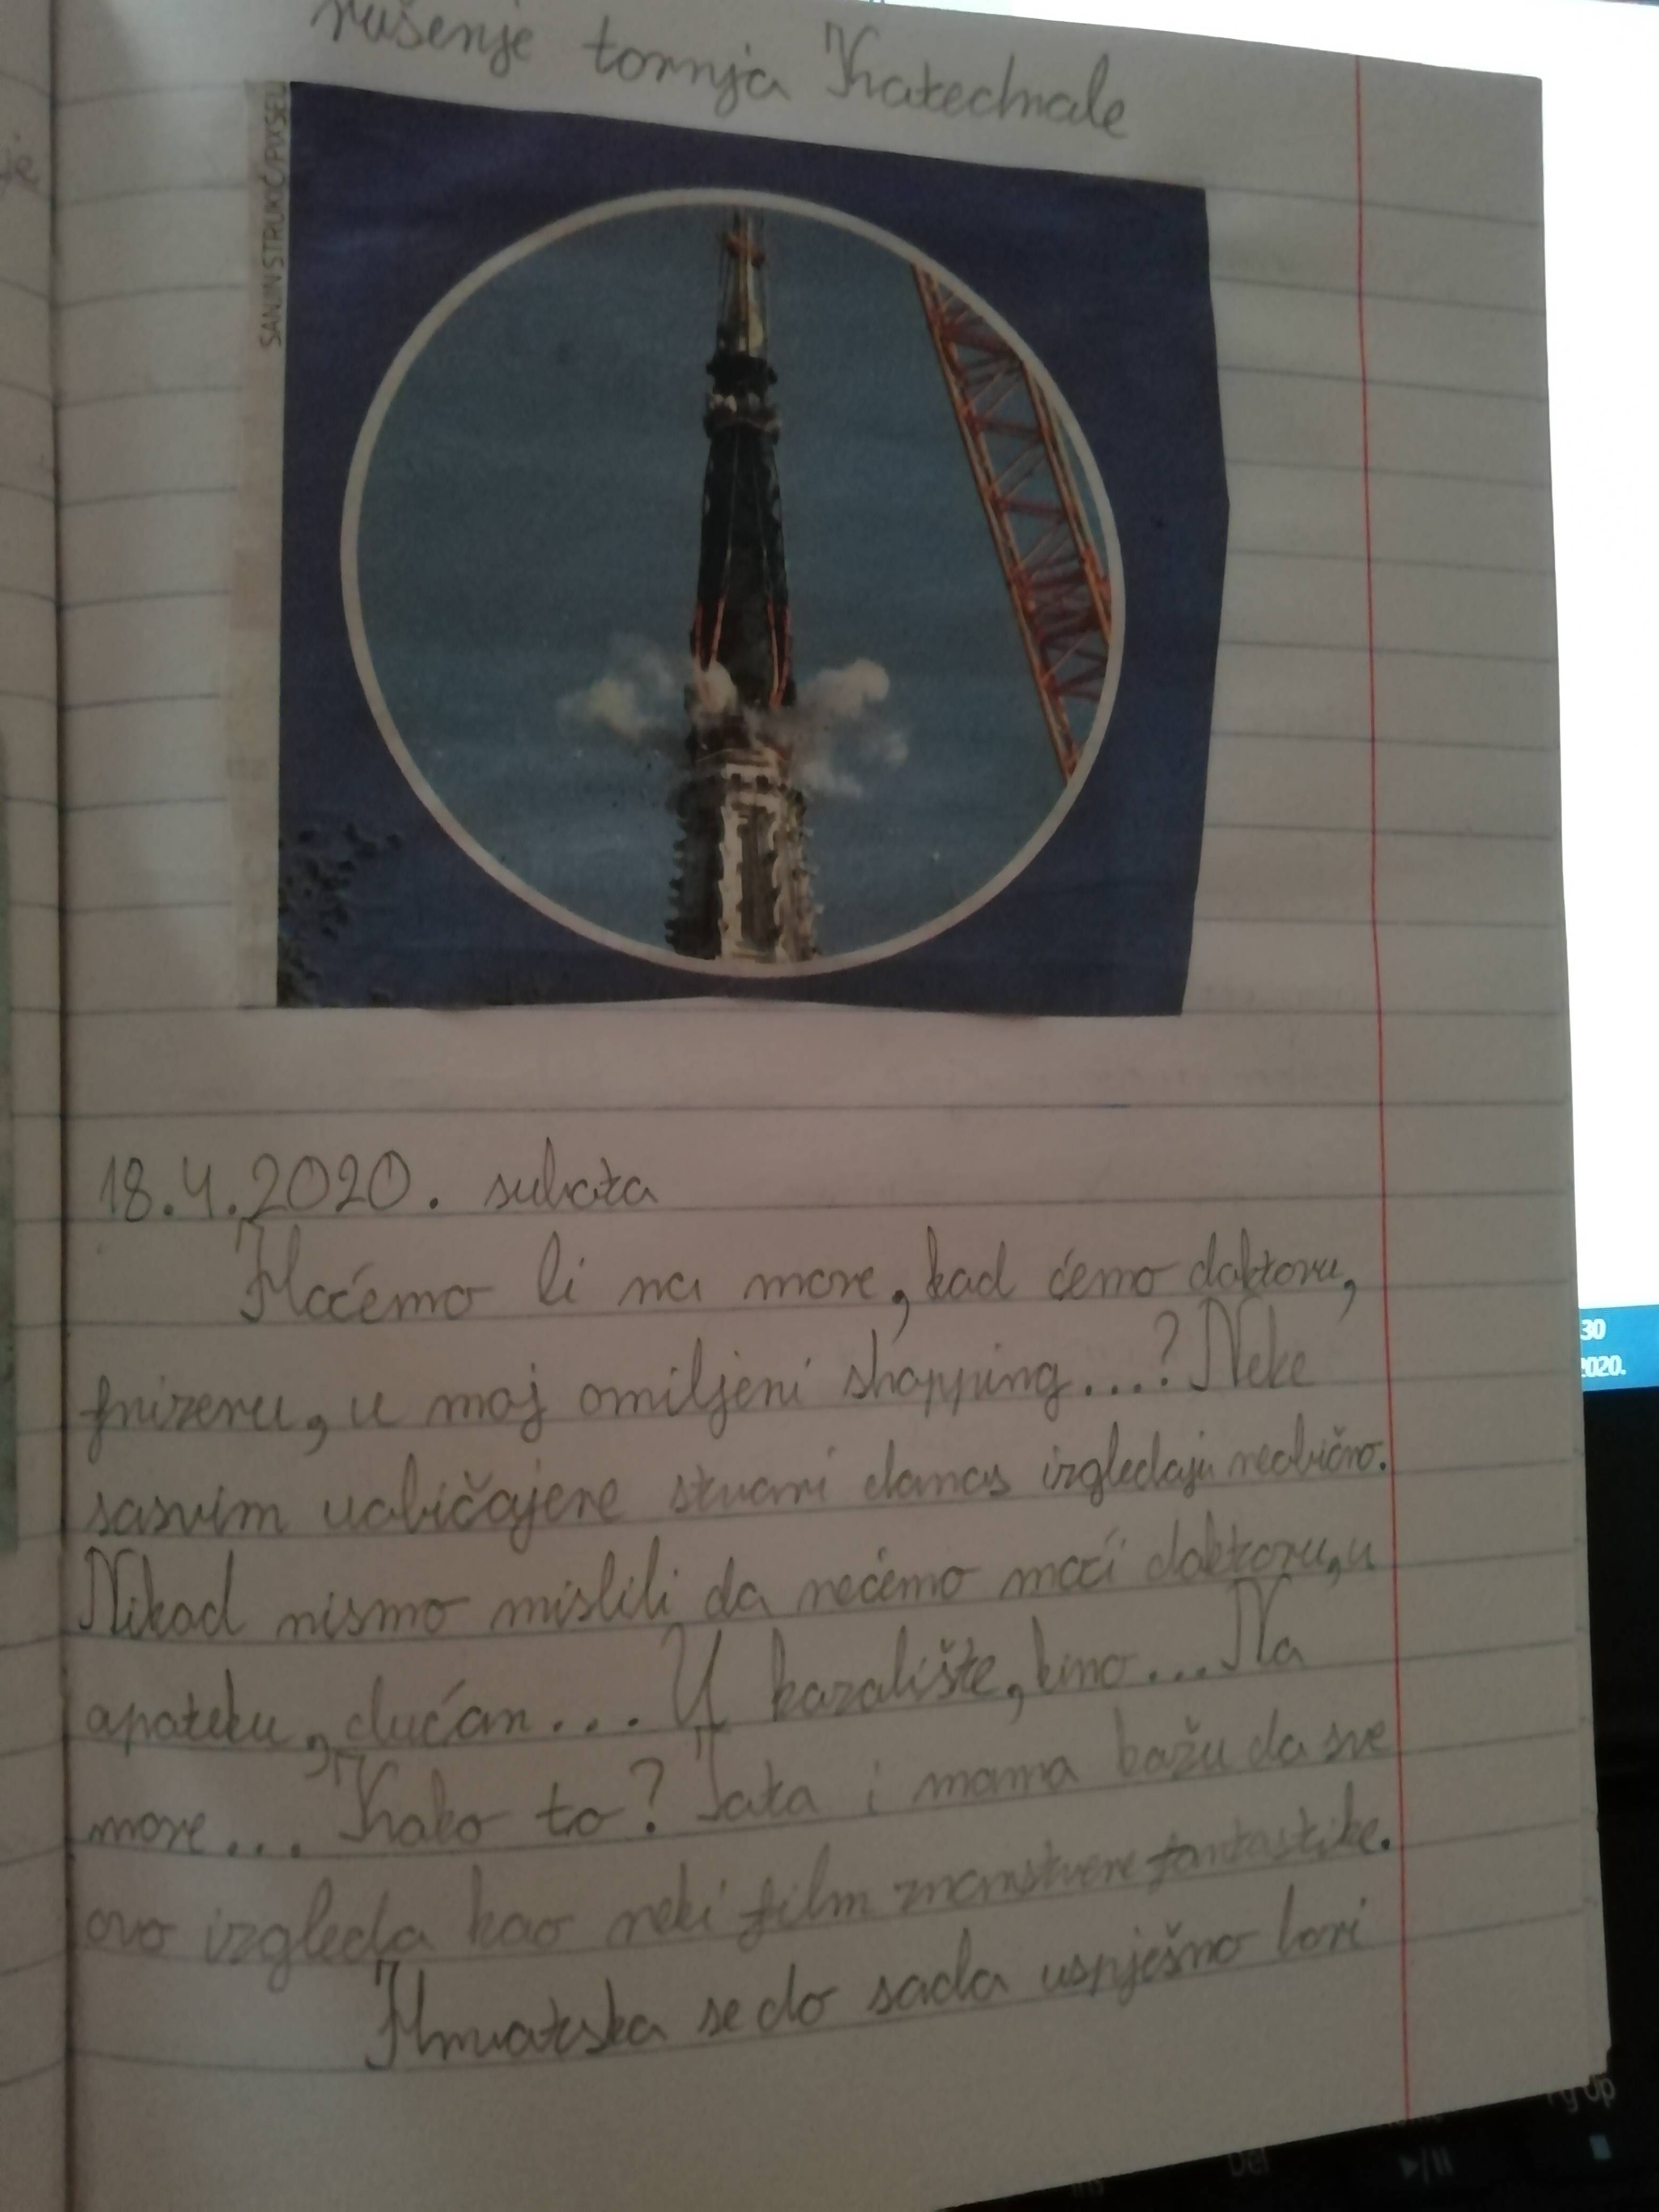 rušenje tornja Katedrale
SANJIN STRUKIĆ/PIXSELL
18.4.2020. subota
Hoćemo li na more, kad ćemo doktoru,
frizeru, u moj omiljeni shopping...? Neke
sasvim uobičajene stvari danas izgledaju neobično.
Nikad nismo mislili da nećemo moći doktoru, u
apoteku, dućan... U kazalište, kino... Na
more... Kako to? Tata i mama kažu da sve
ovo izgleda kao neki film znanstvene fantastike.
Hrvatska se do sada uspješno bori
je
30
2020.
Pg Up
Del
Ins